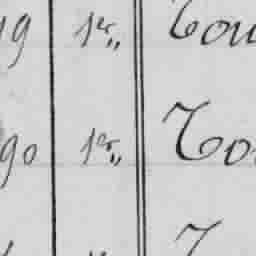 19 1er„ Tou
90 1er„ To